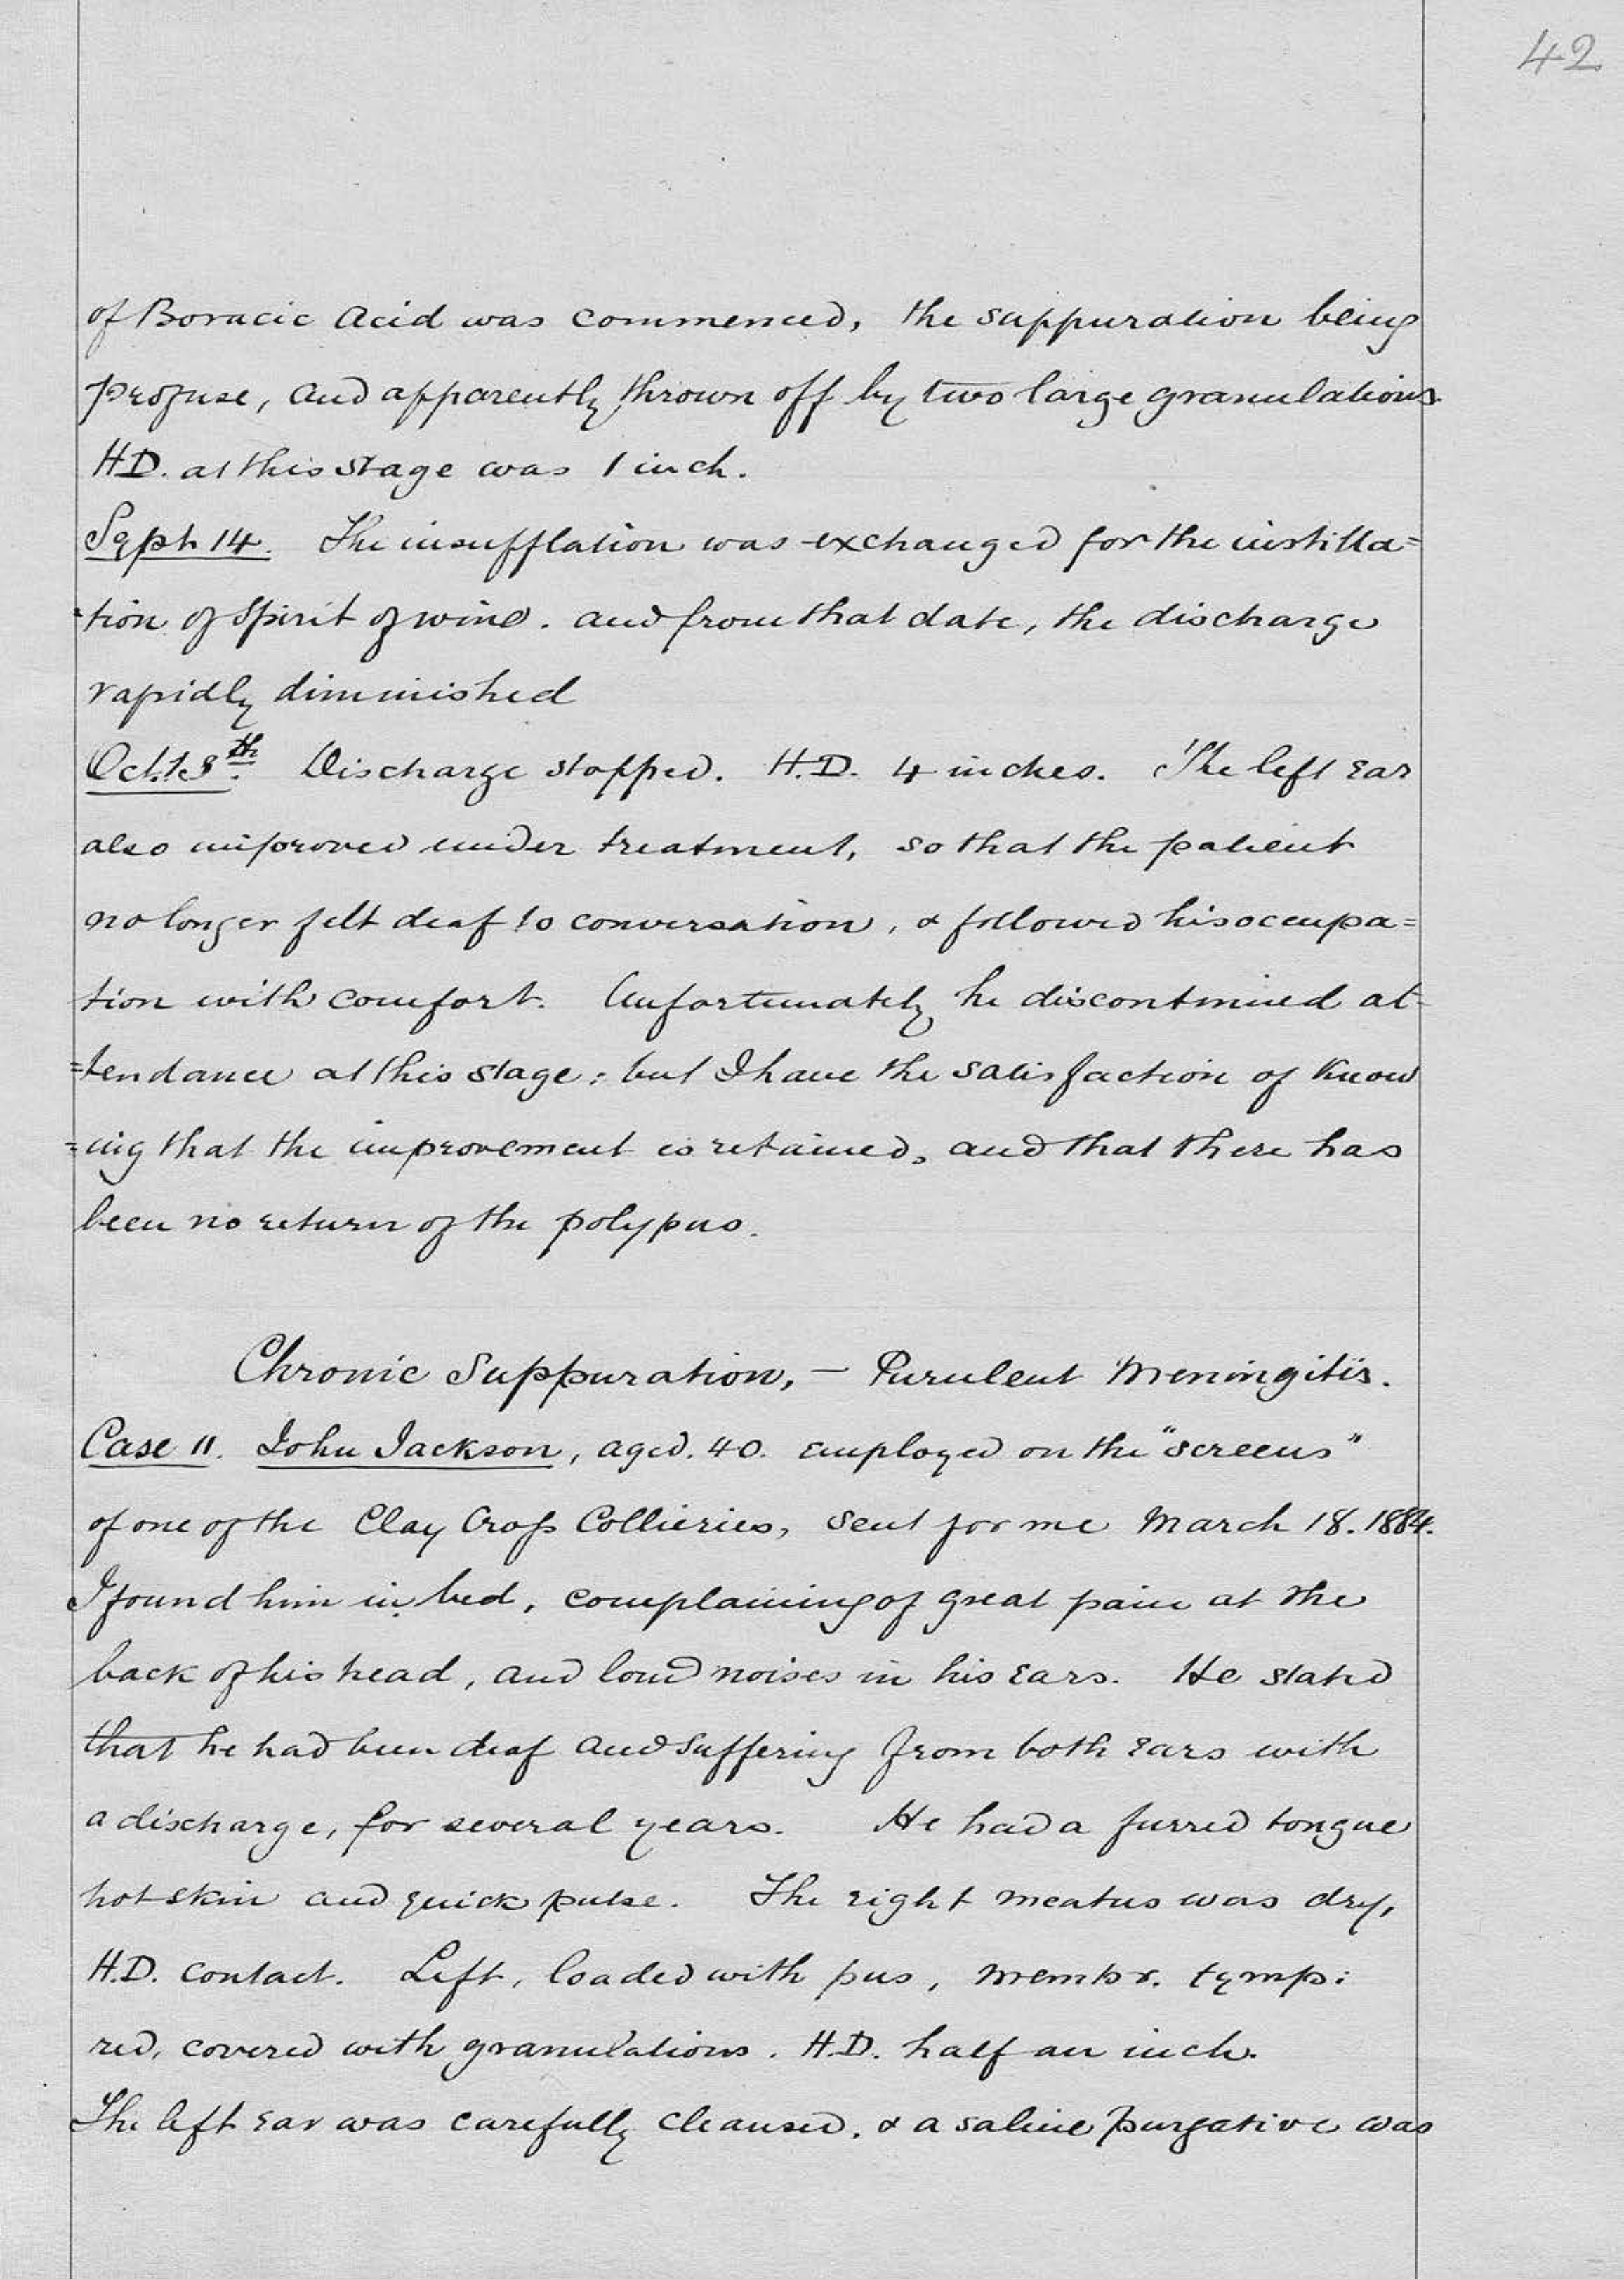 42
of Boracic Acid was commenced, the suppuration being
profuse, and apparently thrown off by two large granulations.
H.D. at this stage was 1 inch.
Sept 14. The insufflation was exchanged for the instilla=
=tion of Spirit of wine. and from that date, the discharge
rapidly diminished
Oct. 13th. Discharge stopped. H.D. 4 inches. The left ear
also improved under treatment, so that the patient
no longer felt deaf to conversation, & followed his occupa=
tion with comfort. Unfortunately he discontinued at=
=tendance at this stage: but I have the satisfaction of know
=ing that the improvement is retained, and that there has
been no return of the polypus.
Chronic Suppuration, – Purulent Meningitis.
Case 11. John Jackson, aged. 40. employed on the "screens"
of one of the Clay Cross Collieries, sent for me March 18. 1884.
I found him in bed, complaining of great pain at the
back of his head, and loud noises in his ears. He stated
that he had been deaf and suffering from both ears with
a discharge, for several years. He had a furred tongue
hot skin and quick pulse. The right meatus was dry,
H.D. contact. Left, loaded with pus, membr. tymp:
red, covered with granulations. H.D. half an inch.
The left ear was carefully cleansed, & a saline purgative was